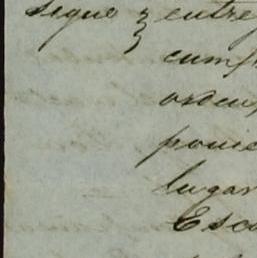 Sigue } entre
cump
orden
ponie
lugar
Esco